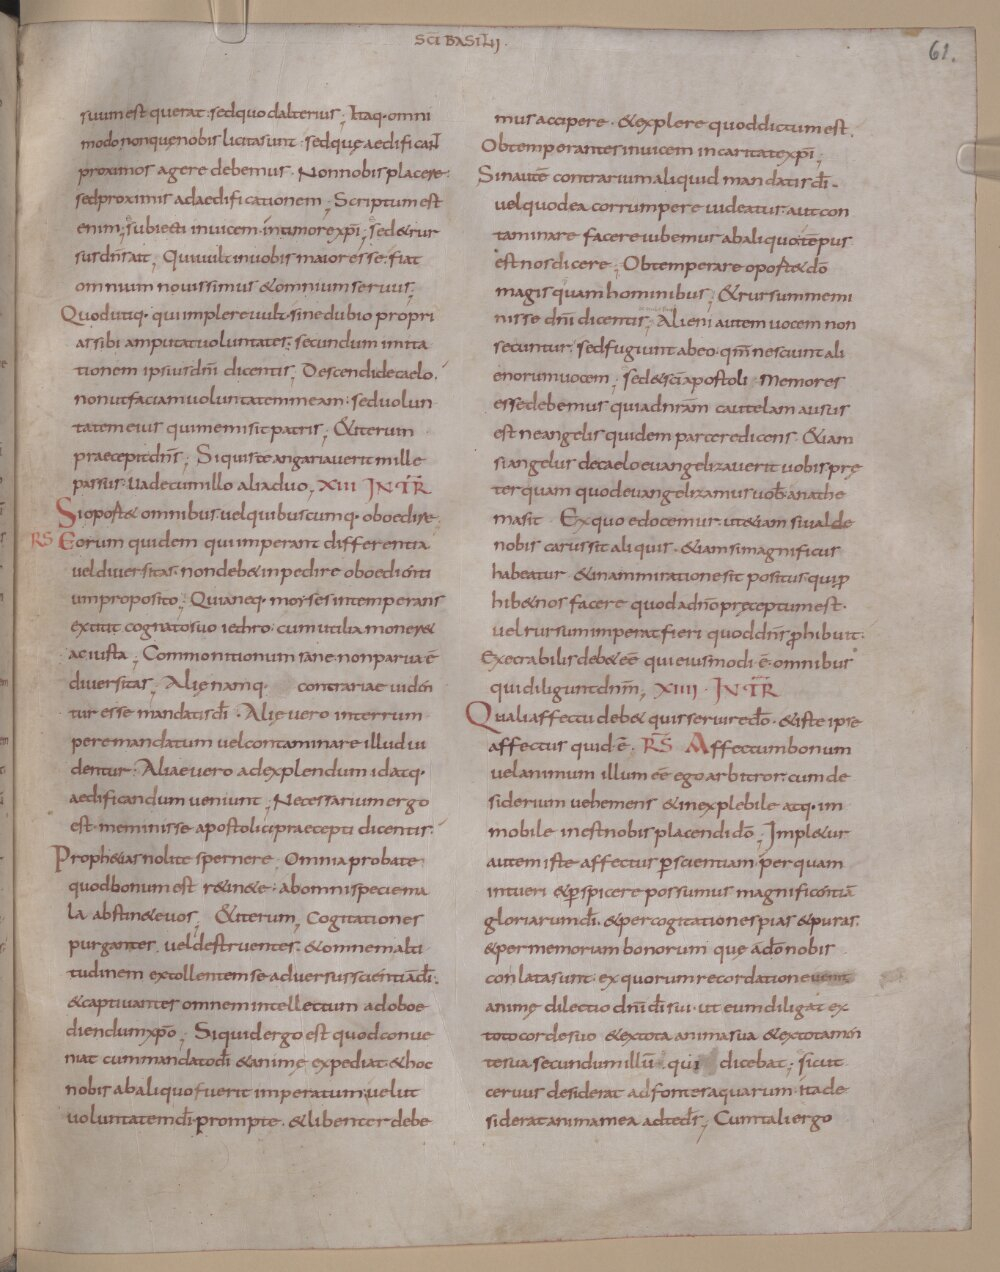 SCI BASILII
61.
suum est querat; sed quod alterius; Itaq· omni
modo non quę nobis licita sunt sed quę aedificant
proximos agere debemus· Non nobis placere
sed proximis ad aedificationem; Scriptum est
enim; subiecti invicem in timore xp̄i; sed & rur
sus dn̄s ait; Qui vult in vobis maior esse· fiat
omnium novissimus & omnium servus;
Quod utiq· qui implere vult· sine dubio propri
as sibi amputat voluntates; secundum imita
tionem ipsius dn̄i dicentis; Descendi de caelo
non ut faciam voluntatem meam· sed volun
tatem eius qui me misit patris; & iterum
praecepit dn̄s; Si quis te angariaverit mille
passus· vade cum illo alia duo, XIII INTR̄
Si oport& omnibus vel quibuscumq· oboedire
RS Eorum quidem qui imperant differentia
vel diversitas· non deb& inpedire oboedienti
um proposito; Quia neq· moyses intemperans
extitit cognato suo iethro· cum utilia moner&
ac iusta; Commonitionum sane non parva ē
diversitas; Alię namq· contrariae viden
tur esse mandatis dī· Alię vero interrum
pere mandatum vel contaminare illud vi
dentur· Aliae vero ad explendum id atq·
aedificandum veniunt; Necessarium ergo
est· meminisse apostolici praecepti dicentis;
Proph&ias nolite spernere· Omnia probate
quod bonum est r&in&e· ab omni specie ma
la abstin&e vos; & iterum, Cogitationes
purgantes vel destruentes· & omnem alti
tudinem extollentem se adversus scientiā dī;
& captivantes omnem intellectum ad oboe
diendum xp̄o; Si quid ergo est quod conve
niat cum mandato dī & animę expediat & hoc
nobis ab aliquo fuerit imperatum velut
voluntatem dī· prompte· & libenter debe
mus accipere· & explere quod dictum est.
Obtemperantes invicem in caritate xp̄i;
Sin autē contrarium aliquid mandatis dī·
vel quod ea corrumpere videatur aut con
taminare facere iubemur ab aliquo· tēpus
est nos dicere; Obtemperare oport& dō
magis quam hominibus; & rursum memi
nisse dn̄i dicentis; Alieni autem vocem non
secuntur· sed fugiunt ab eo· qm̄ nesciunt ali
enorum vocem; sed & sc̄i apostoli· Memores
esse debemus quia ad nr̄am cautelam ausus
est ne angelis quidem parcere dicens· & iam
si angelus de caelo evangelizaverit vobis prę
ter quam quod evangelizamus vob· anathe
ma sit· Ex quo edocemur· ut & iam si valde
nobis carus sit aliquis· & iam si magnificus
habeatur & in ammiratione sit positus· qui p
hib& nos facere quod a dn̄o pręceptum est·
vel rursum imperat fieri quod dn̄s p hibuit;
Execrabilis deb& eē qui eiusmodi ē· omnibus
qui diligunt dn̄m, XIIII· INTR̄
Quali affectu deb& quis servire dō· & iste ipse
affectus quid ē· RS Affectum bonum
vel animum illum eē ego arbitror· cum de
siderium vehemens & inexplebile atq· im
mobile inest nobis placendi dō; Impl&ur
autem iste affectus p scientiam· per quam
intueri & pspicere possumus magnificentiā
gloriarum dī· & per cogitationes pias & puras·
& per memoriam bonorum quę a dō nobis
conlata sunt· ex quorum recordatione venit
animę dilectio dn̄i dī sui· ut eum diligat ex
toto corde suo & ex tota anima sua & ex tota men
te sua· secundum illū qui dicebat; sicut
cervus desiderat ad fontes aquarum· ita de
siderat anima mea ad te dš; Cum tali ergo